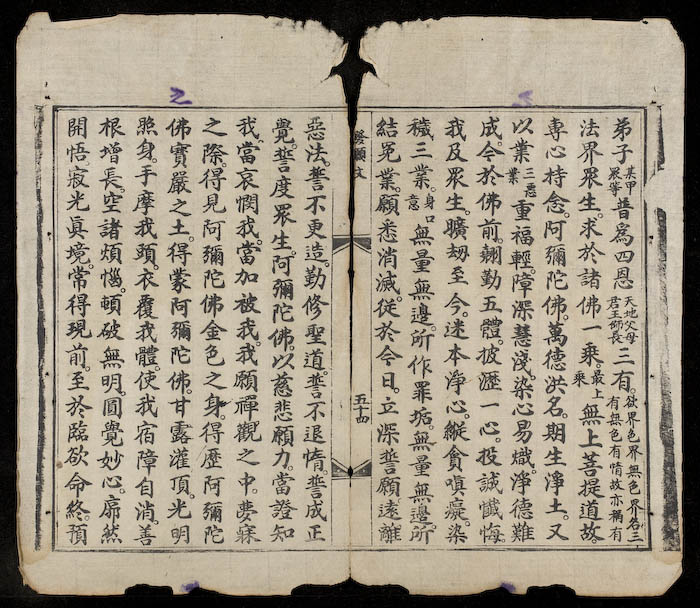 弟子某甲眾等普爲四恩天地父母君王師長三有。欲界色界無色界名三有無色有情故亦稱有
法界眾生。求於諸佛一乘。最上乘無上菩提道故。
專心持念。阿彌陀佛。萬德洪名。期生淨土。又
以業三惡業重福輕。障深慧淺。染心易熾。淨德難
成。今於佛前。翹勤五體。披瀝一心。投誠懺悔。
我及眾生。曠劫至今。迷本淨心。縱貪嗔癡。染
穢三業。身口意無量無邊。所作罪垢。無量無邊。所
結冤業。願悉消滅。從於今日。立深誓願。遠離
發願文
五十四
惡法。誓不更造。勤修聖道。誓不退惰。誓成正
覺。誓度眾生。阿彌陀佛。以慈悲願力。當證知
我。當哀憫我。當加被我。我願禪觀之中。夢寐
之際。得見阿彌陀佛金色之身。得歷阿彌陀
佛寶嚴之土。得蒙阿彌陀佛。甘露灌頂。光明
照身。手摩我頭。衣覆我體。使我宿障自消。善
根增長。空諸煩惱。頓破無明。圓覺妙心。廓然
開悟。寂光眞境。常得現前。至於臨欲命終。預